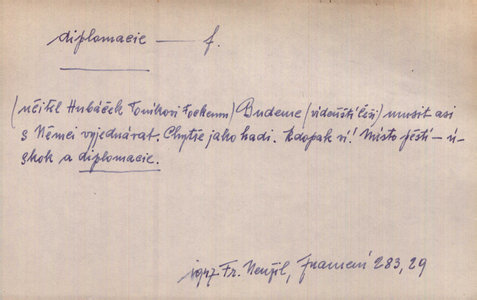 diplomacie — f.
(učitel Hubáček Toníkovi Pockemu) Budeme (vídeňští Češi) musit asi
s Němci vyjednávat. Chytře jako hadi. Kdopak ví! Místo pěstí – ú-
skok a diplomacie.
1947 Fr. Neužil, Prameni 283, 29